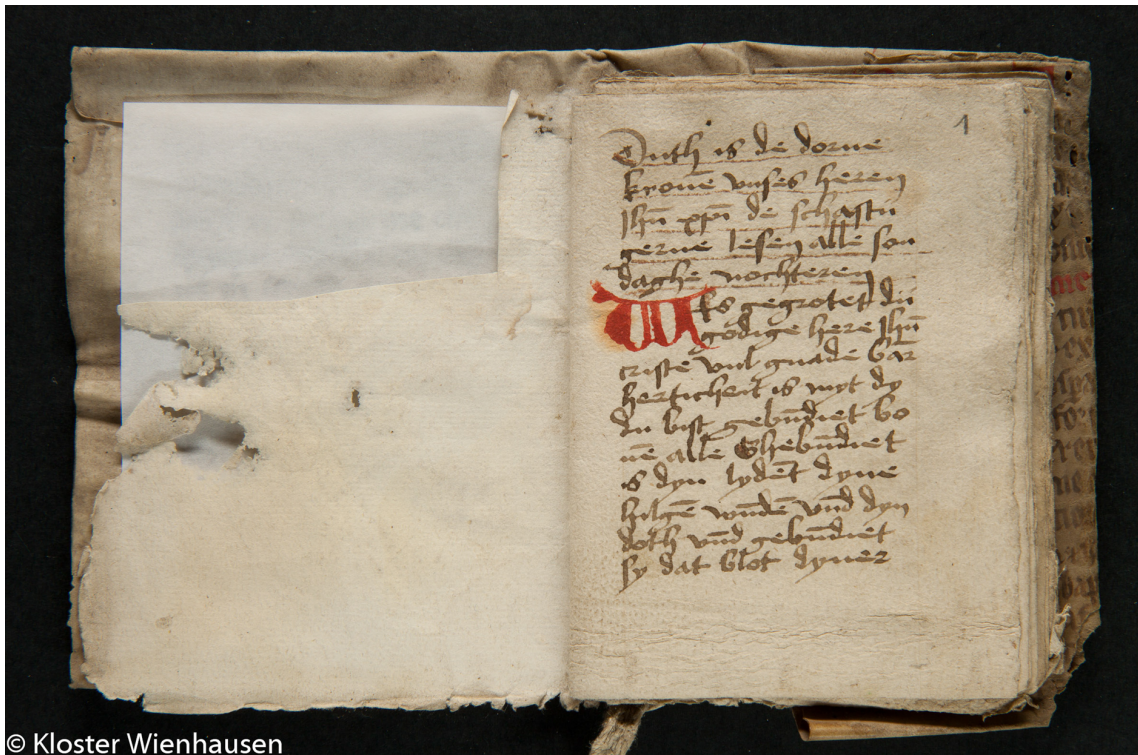 1
Duth is de dorne
krone vnses heren
Jhū xp̄ī de schaltu
gerne lesen alle son
daghe nochteren
Wes gegrotet du
godige here Jhū
criste vul gnade bār
herticheit is myt dy
du bist gebn̄diet bo
uē alle Ghebn̄diet
is dyn lydēt dyne
hilgē wūdē vn̄d dyn
doth vn̄d gebn̄diet
sy dat blot dyner
© Kloster Wienhausen